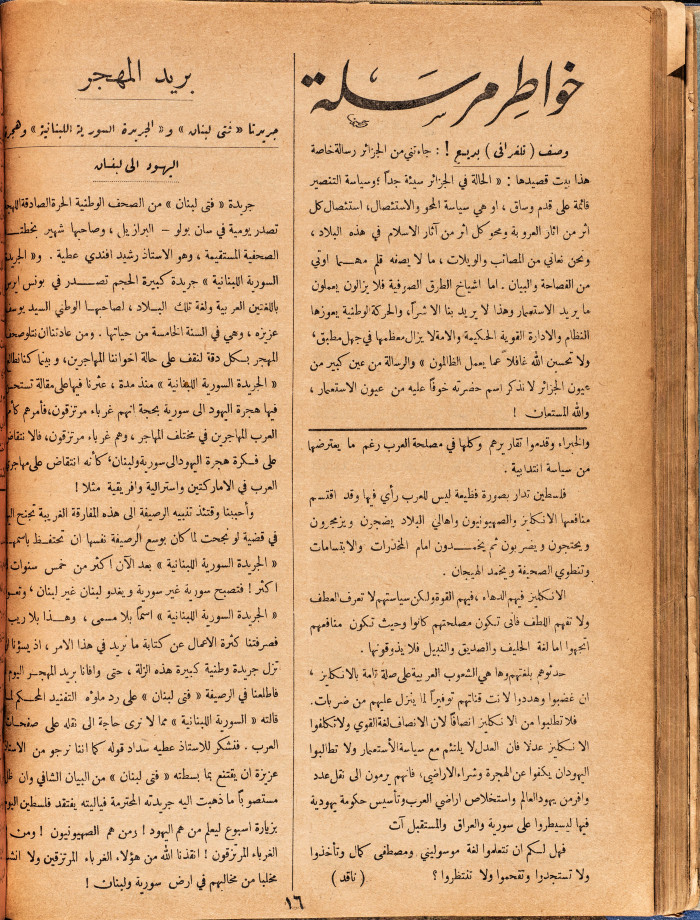 خواطر مرسلة
وصف (تلغرافي) بريسع ! : جاءتني من الجزائر رسالة خاصة
هذا بيت قصيدها : « الحالة في الجزائر سيئة جداً وسياسة التنصير
قائمة على قدم وساق ، او هي سياسة المحو والاستئصال، استئصال كل
اثر من اثار العروبة ومحو كل اثر من آثار الاسلام في هذه البلاد ،
ونحن نعاني من المصائب والويلات ، ما لا يصفه قلم مهما اوتي
من الفصاحة والبيان . اما اشياخ الطرق الصوفية فلا يزالون يعملون
ما يريد الاستعمار وهذا لا يريد بنا الا شراً، والحركة الوطنية يعوزها
النظام والادارة القوية الحكيمة والامة لا يزال معظمها في جهل مطبق،
ولا تحسبن الله غافلاً عما يعمل الظالمون » والرسالة من عين كبير من
عيون الجزائر لا نذكر اسم حضرته خوفاً عليه من عيون الاستعمار ،
والله المستعان !
والخبراء وقدموا تقاريرهم وكلها في مصلحة العرب رغم ما يعترضها
من سياسة انتدابية .
فلسطين تدار بصورة فظيعة ليس للعرب رأي فيها وقد اقتسم
منافعها الانكليز والصهيونيون واهالي البلاد يضجرون ويزمجرون
ويحتجون ويضربون ثم يخمدون امام المخدرات والابتسامات
وتنطوي الصحيفة ويخمد الهيجان .
الانكليز فيهم الدهاء ، فيهم القوة ولكن سياستهم لا تعرف العطف
ولا تفهم اللطف فأنى تكون مصلحتهم كانوا وحيث تكون منافعهم
اتجهوا اما لغة الحليف والصديق والنبيل فلا يذوقونها .
حدثوهم بلغتهم وها هي الشعوب العربية على صلة تامة بالانكليز ،
ان غضبوا وهددوا لانت قناتهم توفيراً لما ينزل عليهم من ضربات.
فلا تطلبوا من الانكليز انصافاً لان الانصاف لغة القوي ولا تكلفوا
الانكليز عدلا فان العدل لا يلتئم مع سياسة الأستعمار ولا تطالبوا
اليهود ان يكفوا عن الهجرة وشراء الاراضي، فانهم يرمون الى نقل عدد
وافر من يهود العالم واستخلاص اراضي العرب وتأسيس حكومة يهودية
فيها ليسيطروا على سورية والعراق والمستقبل آت
فهل لكم ان تتعلموا لغة موسوليني ومصطفى كمال وتأخذوا
ولا تستجدوا وتقحموا ولا تنتظروا ؟ ( ناقد )
بريد المهجر
جريدتا « فتى لبنان » و « الجريدة السورية اللبنانية » وهجرة
اليهود الى لبنان
جريدة « فتى لبنان » من الصحف الوطنية الحرة الصادقة اللهجة
تصدر يومية في سان بولو – البرازيل ، وصاحبها شهير بخطته
الصحفية المستقيمة ، وهو الاستاذ رشيد افندي عطية . و« الجريدة
السورية اللبنانية » جريدة كبيرة الحجم تصدر في بونس ايرس
باللغتين العربية ولغة تلك البلاد ، لصاحبها الوطني السيد يوسف
عزيزه ، وهي في السنة الخامسة من حياتها . ومن عادتنا ان نتلو صحف
المهجر بسكل دقة لنقف على حالة اخواننا المهاجرين، وبينما كنا نطالع
« الجريدة السورية اللبنانية » منذ مدة ، عثرنا فيها على مقالة تستحسن
فيها هجرة اليهود الى سورية بحجة انهم غرباء مرتزقون، فأمرهم كأمر
العرب المهاجرين في مختلف المهاجر ، وهم غرباء مرتزقون، فالانتقاض
على فكرة هجرة اليهود الى سورية ولبنان، كأنه انتقاض على مهاجري
العرب في الاماركتين واسترالية وافريقية مثلا !
وأحببنا وقتئذ تنبيه الرصيفة الى هذه المفارقة الغريبة تجنح اليها
في قضية لو نجحت لما كان بوسع الرصيفة نفسها ان تحتفظ باسمها
« الجريدة السورية اللبنانية » بعد الآن اكثر من خمس سنوات
اكثر ! فتصبح سورية غير سورية ويغدو لبنان غير لبنان ،
« الجريدة السورية اللبنانية » اسماً بلا مسمى ، وهذا بلا ريب
فصرفتنا كثرة الاعمال عن كتابة ما نريد في هذا الامر ، اذ يسؤنا
تزل جريدة وطنية كبيرة هذه الزلة ، حتى وافانا بريد المهجر اليوم
فاطلعنا في الرصيفة « فتى لبنان » على رد ملؤه التفنيد المحكم لما
قالته « السورية اللبنانية » مما لا نرى حاجة الى نقله على صفحات
العرب . فنشكر للاستاذ عطيه سداد قوله كما اننا نرجو من الاستاذ
عزيزة ان يقتنع بما بسطته « فتى لبنان » من البيان الشافي وان ظل
مستصوباً ما ذهبت اليه جريدته المحترمة فياليته يفتقد فلسطين اليوم
بزيارة اسبوع ليعلم من هم اليهود ! ومن هم الصهيونيون ! ومن
الغرباء المرتزقون ! انقذنا الله من هؤلاء الغرباء المرتزقين ولا انشب
مخلباً من مخالبهم في ارض سورية ولبنان !
١٦